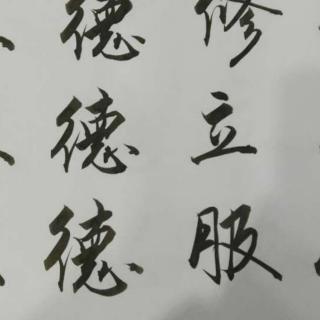 德修
德立
德服